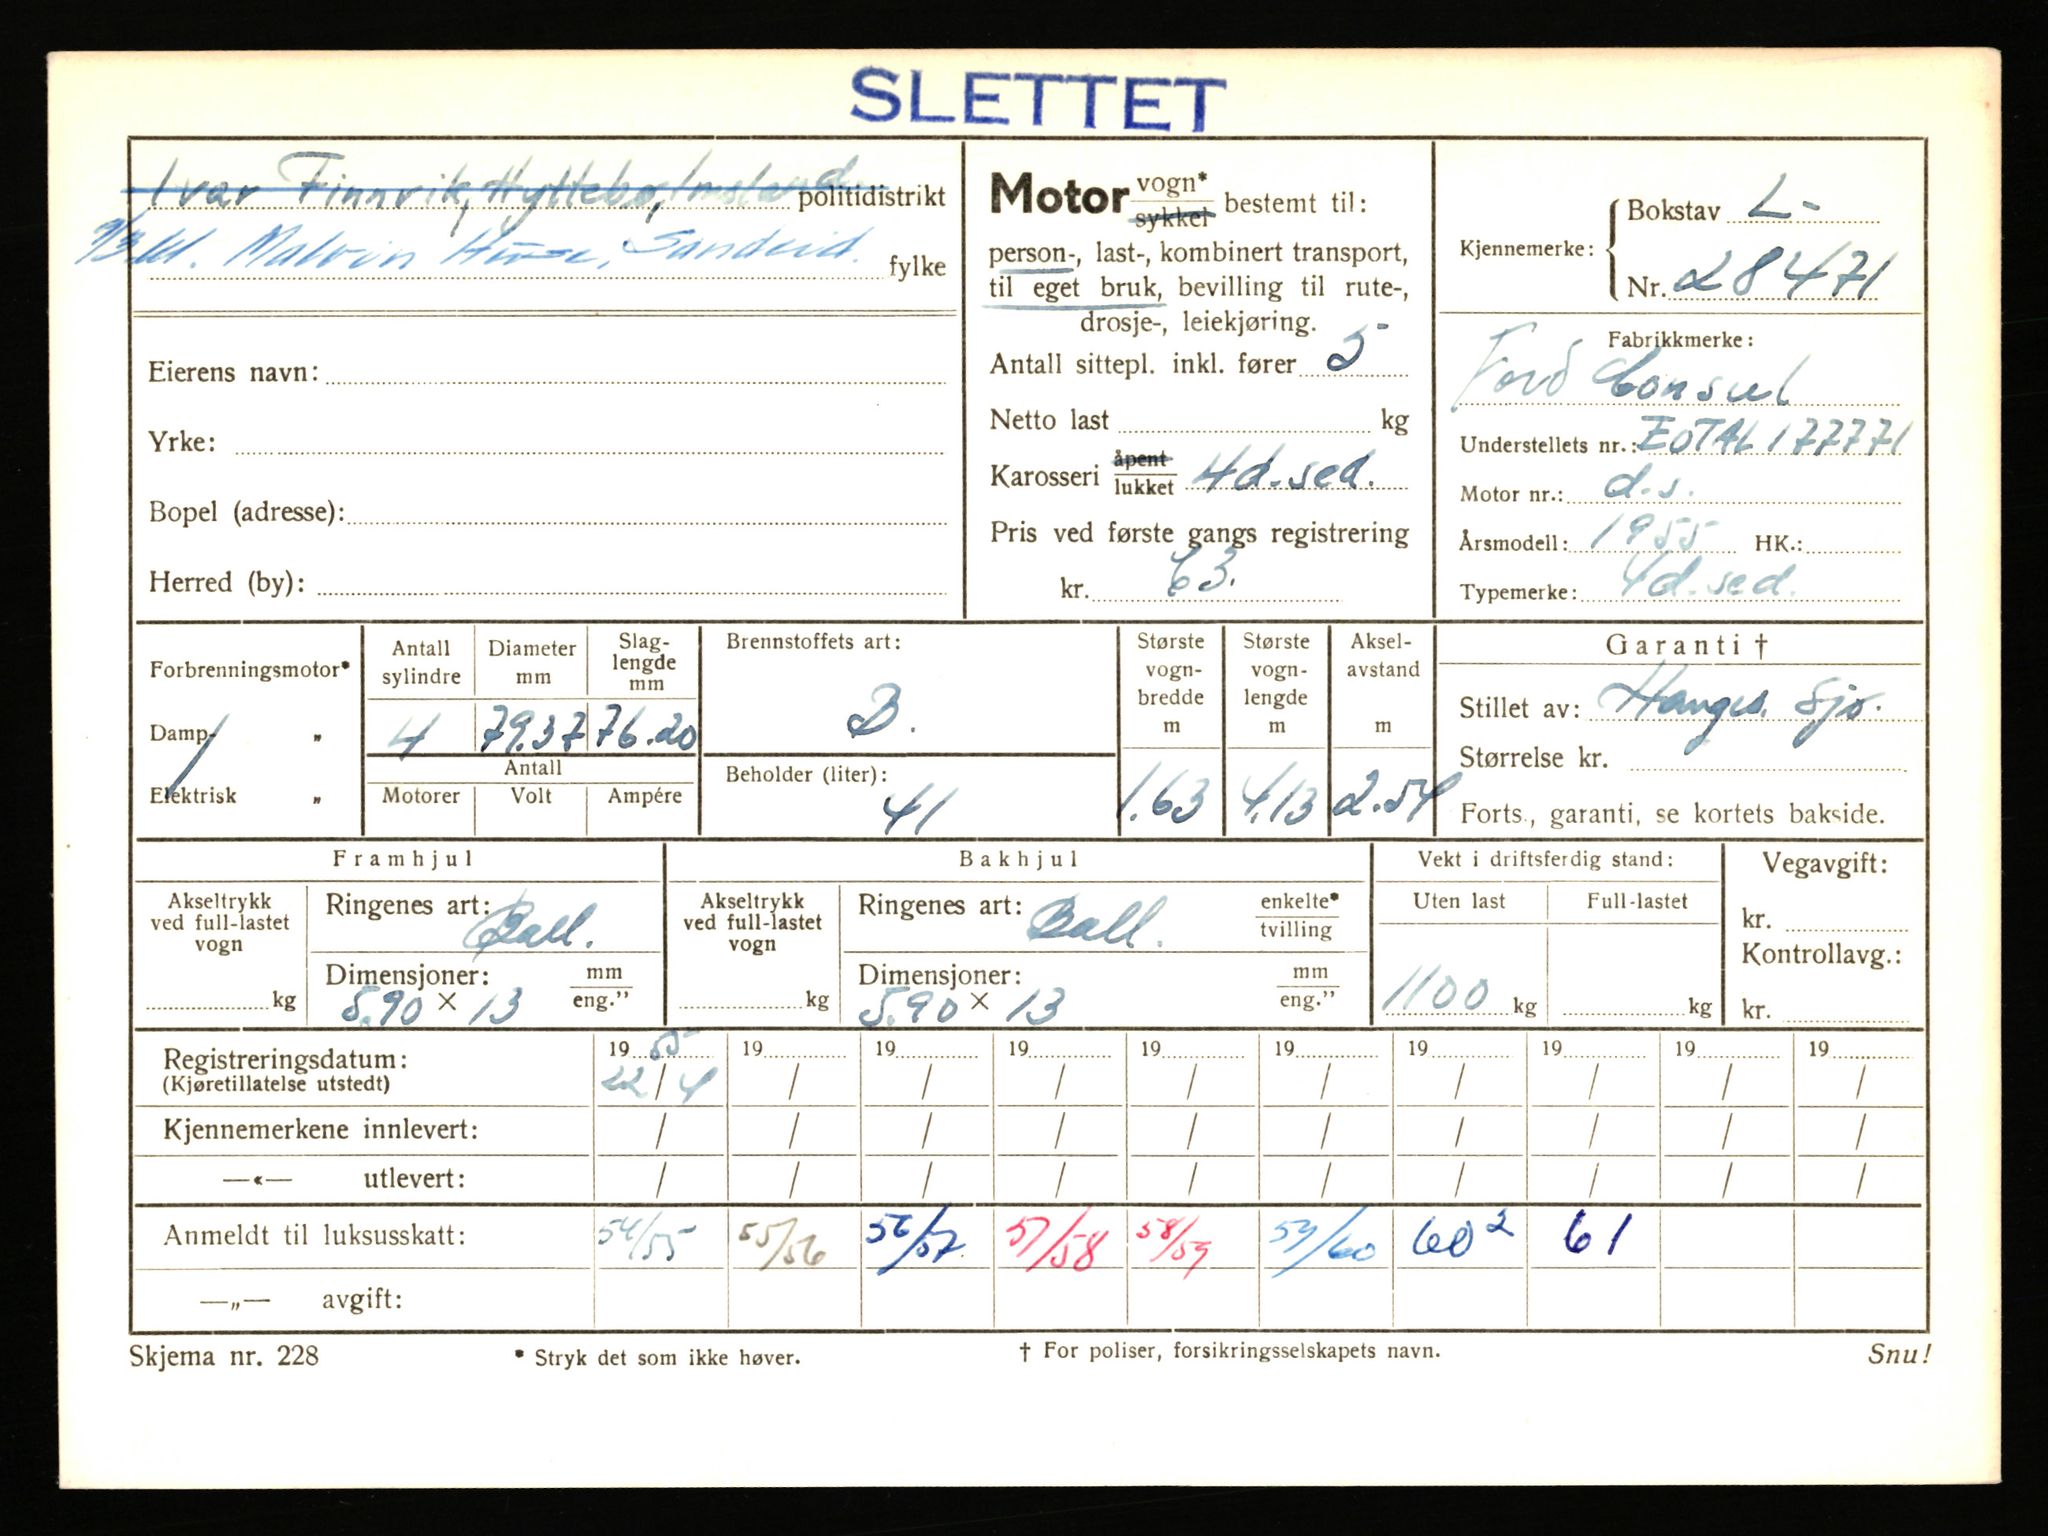 SLETTET
Ivar Finnvik, Hyttebø, Imsland. politidistrikt
Malvin Sandeid. fylke
Eierens navn:
Yrke:
Bopel (adresse):
Herred (by):
Motor vogn* sykkel bestemt til:
person-, last-, kombinert transport,
til eget bruk, bevilling til rute-,
drosje-, leiekjøring.
Antall sittepl. inkl. fører 5
Netto last kg
Karosseri åpent lukket 4d-sed.
Pris ved første gangs registrering
kr. 63.
Kjennemerke: Bokstav L-
Nr. 28471
Fabrikkmerke:
Ford Consul
Understellets nr.: EOTAL 177771
Motor nr.: d.s.
Årsmodell: 1955 HK.:
Typemerke: 4d.sed.
Forbrenningsmotor*
Damp- „
Elektrisk „
Antall sylindre Diameter mm Slag-lengde mm
4 79.37 76.20
Antall
Motorer Volt Ampére
Brennstoffets art:
B.
Beholder (liter):
41
Største vogn-bredde m Største vogn-lengde m Aksel-avstand m
1.63 4.13 2.54
Garanti †
Stillet av: Hauges. Sjø.
Størrelse kr.
Forts., garanti, se kortets bakside.
Framhjul
Akseltrykk ved full-lastet vogn kg
Ringenes art: Ball.
Dimensjoner: mm eng."
5.90 × 13
Bakhjul
Akseltrykk ved full-lastet vogn kg
Ringenes art: Ball. enkelte* tvilling
Dimensjoner: mm eng."
5.90 × 13
Vekt i driftsferdig stand:
Uten last Full-lastet
1100 kg kg
Vegavgift:
kr.
Kontrollavg.:
kr.
Registreringsdatum: 1955 19 19 19 19 19 19 19 19 19
(Kjøretillatelse utstedt) 22/4 / / / / / / / / /
Kjennemerkene innlevert: / / / / / / / / / /
—«— utlevert: / / / / / / / / / /
Anmeldt til luksusskatt: 54/55 55/56 56/57. 57/58 58/59 59/60 60² 61
—„— avgift:
Skjema nr. 228 * Stryk det som ikke høver. † For poliser, forsikringsselskapets navn. Snu!